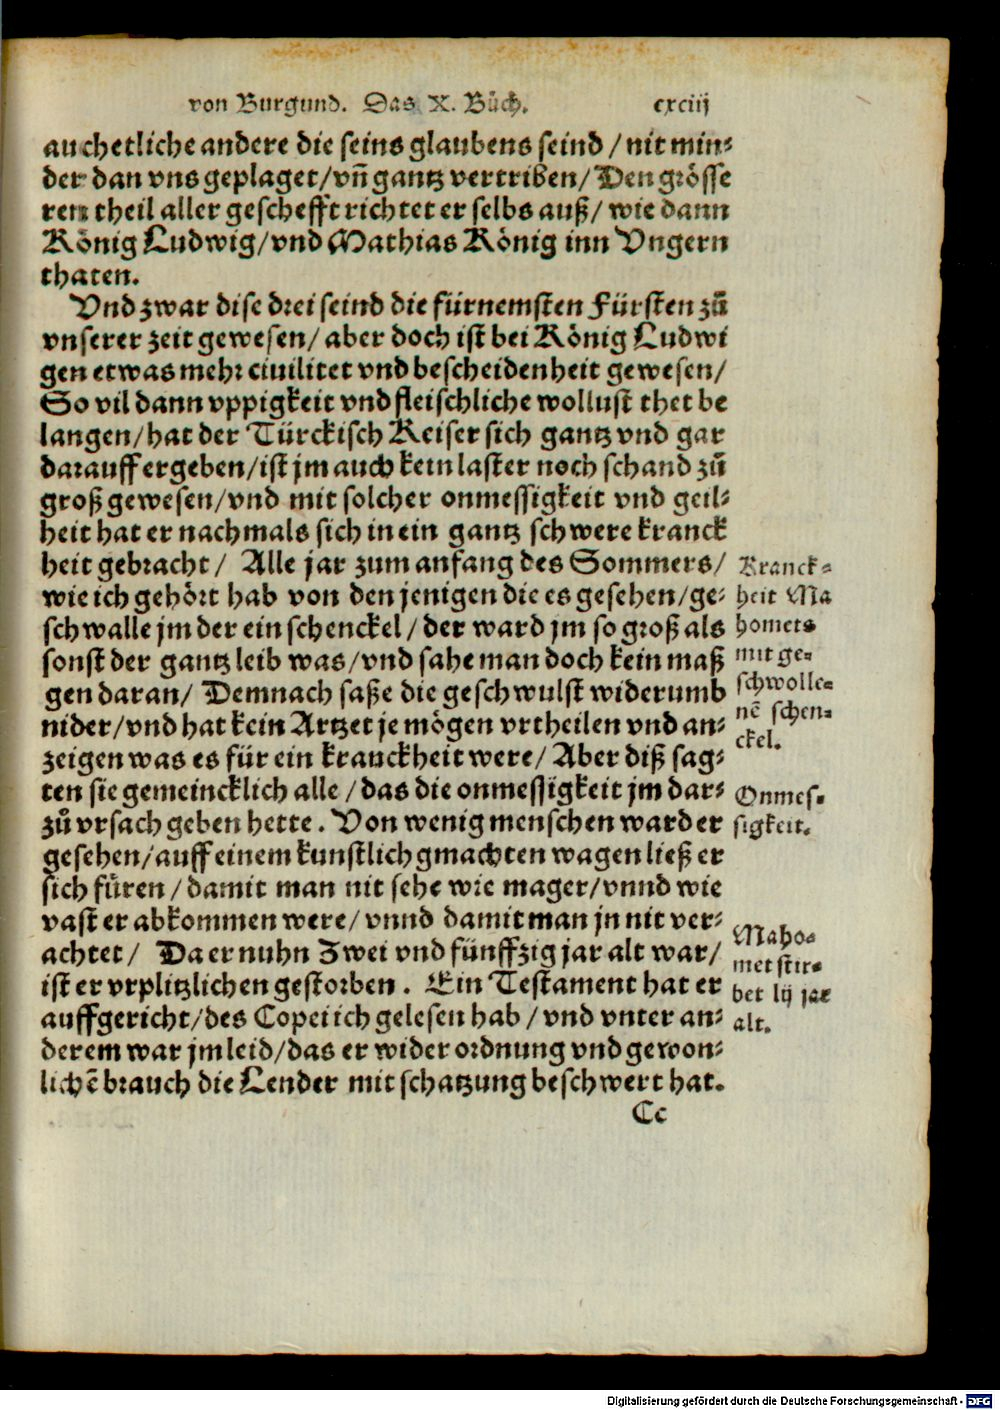 von Burgund. Das X. Bůch. cxciij
auch etliche andere die seins glaubens seind / nit min⸗
der dan vns geplaget/vn̄ gantz vertriben/Den grösse
ren theil aller geschefft richtet er selbs auß/ wie dann
König Ludwig/vnd Mathias König inn Vngern
thaten.
Vnd zwar dise drei seind die fürnemsten Fürsten zů
vnserer zeit gewesen/ aber doch ist bei König Ludwi
gen etwas mehr ciuilitet vnd bescheidenheit gewesen/
So vil dann vppigkeit vnd fleischliche wollust thet be
langen/hat der Türckisch Keiser sich gantz vnd gar
darauff ergeben/ist jm auch kein laster noch schand zů
groß gewesen/vnd mit solcher onmessigkeit vnd geil⸗
heit hat er nachmals sich in ein gantz schwere kranck
heit gebracht/ Alle jar zum anfang des Sommers/
wie ich gehört hab von den jenigen die es gesehen/ge⸗
schwalle jm der ein schenckel/ der ward jm so groß als
sonst der gantz leib was/vnd sahe man doch kein maß
gen daran/ Demnach saße die geschwulst widerumb
nider/vnd hat kein Artzet je mögen vrtheilen vnd an⸗
zeigen was es für ein kranckheit were/ Aber diß sag⸗
ten sie gemeincklich alle / das die onmessigkeit jm dar⸗
zů vrsach geben hette. Von wenig menschen ward er
gesehen/auff einem kunstlich gmachten wagen ließ er
sich füren / damit man nit sehe wie mager/vnnd wie
vast er abkommen were/ vnnd damit man jn nit ver⸗
achtet/ Da er nuhn Zwei vnd fünffzig jar alt war/
ist er vrplitzlichen gestorben. Ein Testament hat er
auffgericht/des Copei ich gelesen hab / vnd vnter an⸗
derem war jm leid/das er wider ordnung vnd gewon⸗
lichē brauch die Lender mit schatzung beschwert hat.
Cc
Kranck⸗
heit Ma
homets
mit ge⸗
schwolle⸗
nē schen⸗
ckel.
Onmes⸗
sigkeit.
Maho⸗
met stir⸗
bet lij jar
alt.
Digitalisierung gefördert durch die Deutsche Forschungsgemeinschaft - DFG